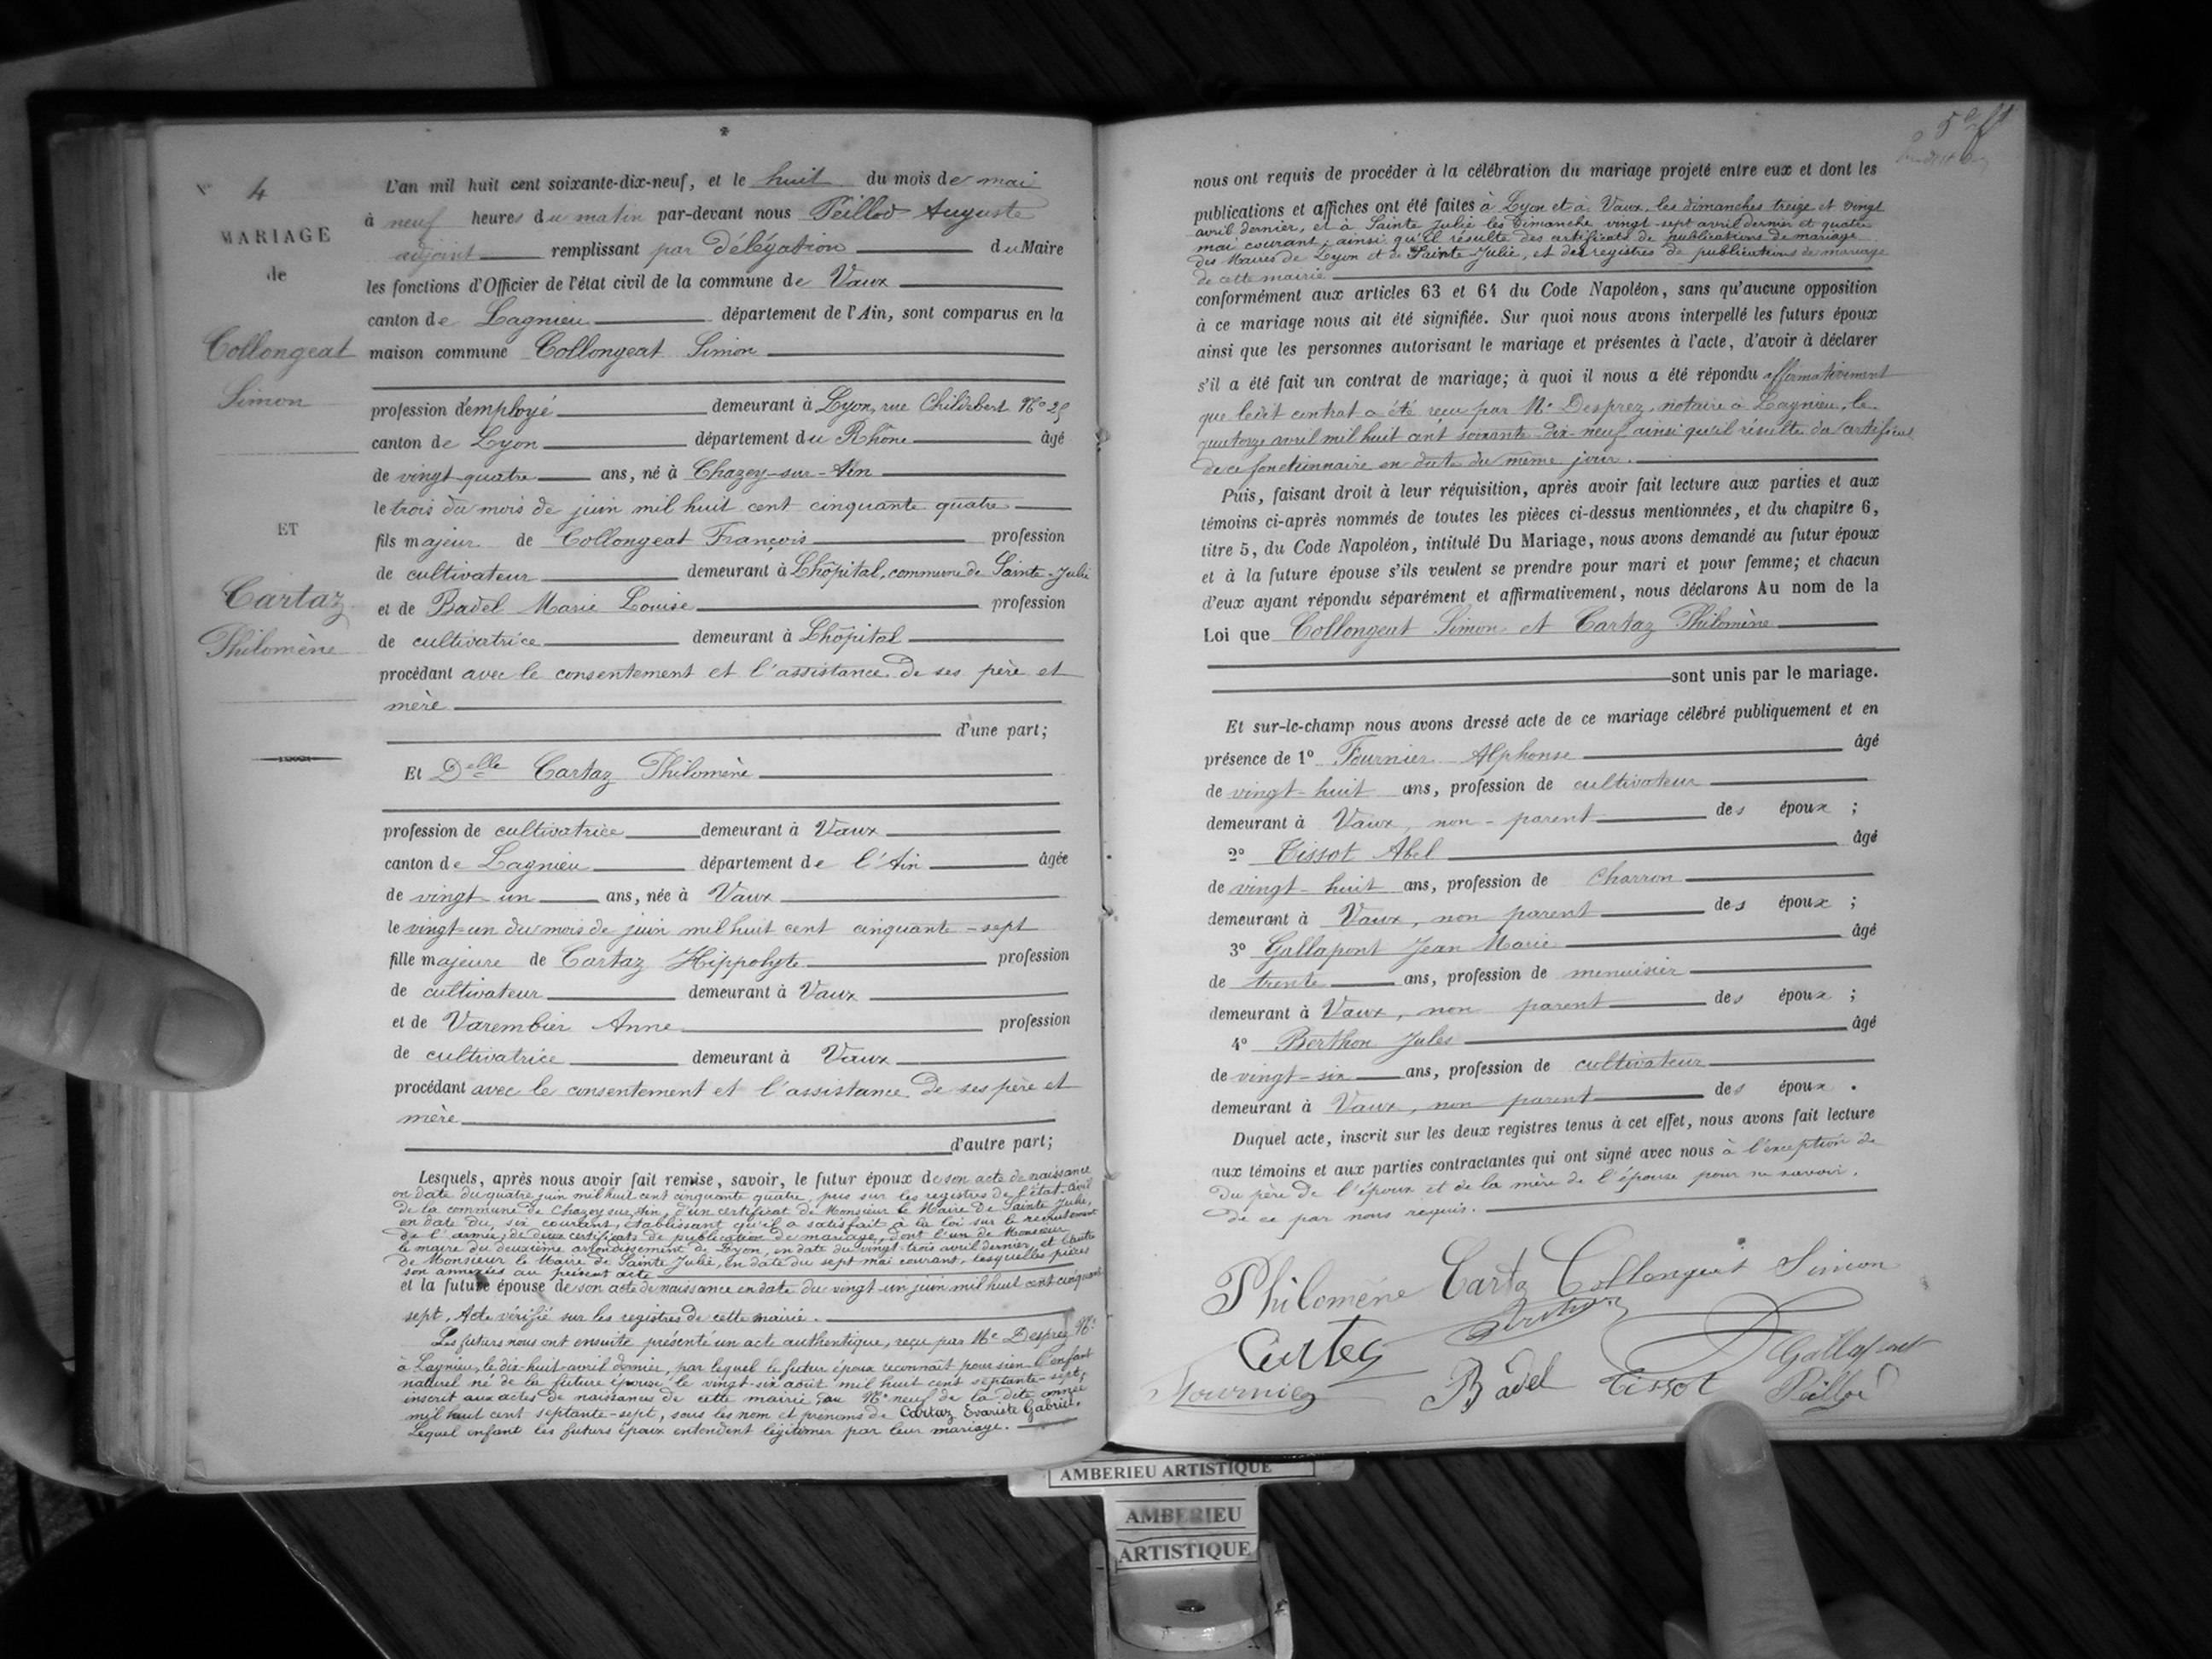 N° 4
MARIAGE
de
Collongeat
Simon
ET
Cartaz
Philomène
L'an mil huit cent soixante-dix-neuf, et le huit du mois de mai
à neuf heures du matin par-devant nous Peillod Auguste
adjoint remplissant par délégation du Maire
les fonctions d'Officier de l'état civil de la commune de Vaux
canton de Lagnieu département de l'Ain, sont comparus en la
maison commune Collongeat Simon
profession d'employé demeurant à Lyon, rue Childebert N° 25
canton de Lyon département du Rhône âgé
de vingt quatre ans, né à Chazey-sur-Ain
le trois du mois de juin mil huit cent cinquante quatre
fils majeur de Collongeat François profession
de cultivateur demeurant à Lhôpital, commune de Sainte-Julie
et de Badel Marie Louise profession
de cultivatrice demeurant à Lhôpital
procédant avec le consentement et l'assistance de ses père et
mère
d'une part;
Et Delle Cartaz Philomène
profession de cultivatrice demeurant à Vaux
canton de Lagnieu département de l'Ain âgée
de vingt un ans, née à Vaux
le vingt-un du mois de juin mil huit cent cinquante-sept
fille majeure de Cartaz Hippolyte profession
de cultivateur demeurant à Vaux
et de Varembier Anne profession
de cultivatrice demeurant à Vaux
procédant avec le consentement et l'assistance de ses père et
mère
d'autre part;
Lesquels, après nous avoir fait remise, savoir, le futur époux de son acte de naissance
en date du quatre juin mil huit cent cinquante quatre, pris sur les registres de l'état-civil
de la commune de Chazey sur Ain, d'un certificat de Monsieur le Maire de Sainte Julie,
en date du six courant, établissant qu'il a satisfait à la loi sur le recrutement
de l'armée; de deux certificats de publication de mariage, dont l'un de Monsieur
le maire du deuxième arrondissement de Lyon, en date du vingt trois avril dernier, et l'autre
de Monsieur le Maire de Sainte Julie, en date du sept mai courant, lesquelles pièces
son annexées au présent acte
et la future épouse de son acte de naissance en date du vingt-un juin mil huit cent cinquante
sept, Acte vérifié sur les registres de cette mairie.
Les futurs nous ont ensuite présenté un acte authentique, reçu par Me Desprez Nre
à Lagnieu, le dix-huit avril dernier, par lequel le futur époux reconnait pour sien l'enfant
naturel né de la future épouse le vingt-six août mil huit cent septante-sept,
inscrit aux actes de naissances de cette mairie, au N° neuf de la dite année
mil huit cent septante-sept, sous les nom et prénoms de Cartaz Evariste Gabriel.
Lequel enfant les futurs époux entendent légitimer par leur mariage.
nous ont requis de procéder à la célébration du mariage projeté entre eux et dont les
publications et affiches ont été faites à Lyon et à Vaux, les dimanches treize et vingt
avril dernier, et à Sainte Julie les dimanche vingt-sept avril dernier et quatre
mai courant; ainsi qu'il résulte des certificats de publications de mariage
des Maires de Lyon et de Sainte-Julie, et des registres de publications de mariage
de cette mairie
conformément aux articles 63 et 64 du Code Napoléon, sans qu'aucune opposition
à ce mariage nous ait été signifiée. Sur quoi nous avons interpellé les futurs époux
ainsi que les personnes autorisant le mariage et présentes à l'acte, d'avoir à déclarer
s'il a été fait un contrat de mariage; à quoi il nous a été répondu affirmativement
que ledit contrat a été reçu par Me Desprez, notaire à Lagnieu, le
quatorze avril mil huit cent soixante-dix-neuf ainsi qu'il résulte du certificat
de ce fonctionnaire en date du même jour.
Puis, faisant droit à leur réquisition, après avoir fait lecture aux parties et aux
témoins ci-après nommés de toutes les pièces ci-dessus mentionnées, et du chapitre 6,
titre 5, du Code Napoléon, intitulé Du Mariage, nous avons demandé au futur époux
et à la future épouse s'ils veulent se prendre pour mari et pour femme; et chacun
d'eux ayant répondu séparément et affirmativement, nous déclarons Au nom de la
Loi que Collongeat Simon et Cartaz Philomène
sont unis par le mariage.
Et sur-le-champ nous avons dressé acte de ce mariage célébré publiquement et en
présence de 1° Fournier Alphonse âgé
de vingt-huit ans, profession de cultivateur
demeurant à Vaux, non-parent des époux ;
2° Tissot Abel âgé
de vingt-huit ans, profession de charron
demeurant à Vaux, non parent des époux ;
3° Gallapont Jean Marie âgé
de trente ans, profession de menuisier
demeurant à Vaux, non parent des époux ;
4° Berthon Jules âgé
de vingt-six ans, profession de cultivateur
demeurant à Vaux, non parent des époux .
Duquel acte, inscrit sur les deux registres tenus à cet effet, nous avons fait lecture
aux témoins et aux parties contractantes qui ont signé avec nous à l'exception de
du père de l'époux et de la mère de l'épouse pour ne savoir,
de ce par nous requis.
Philomène Cartaz Collongeat Simon
Gallapont
Fournier Badel Tissot Peillod
AMBERIEU ARTISTIQUE
AMBERIEU
ARTISTIQUE